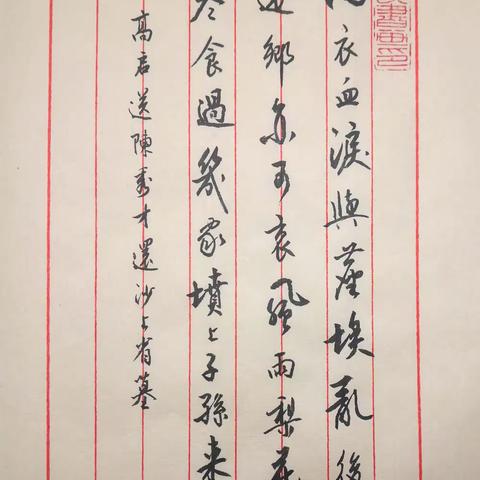 衣血淚與塵埃亂後
還鄉亦可哀風雨梨花
寒食過幾家墳上子孫來
高启送陳秀才還沙上省墓